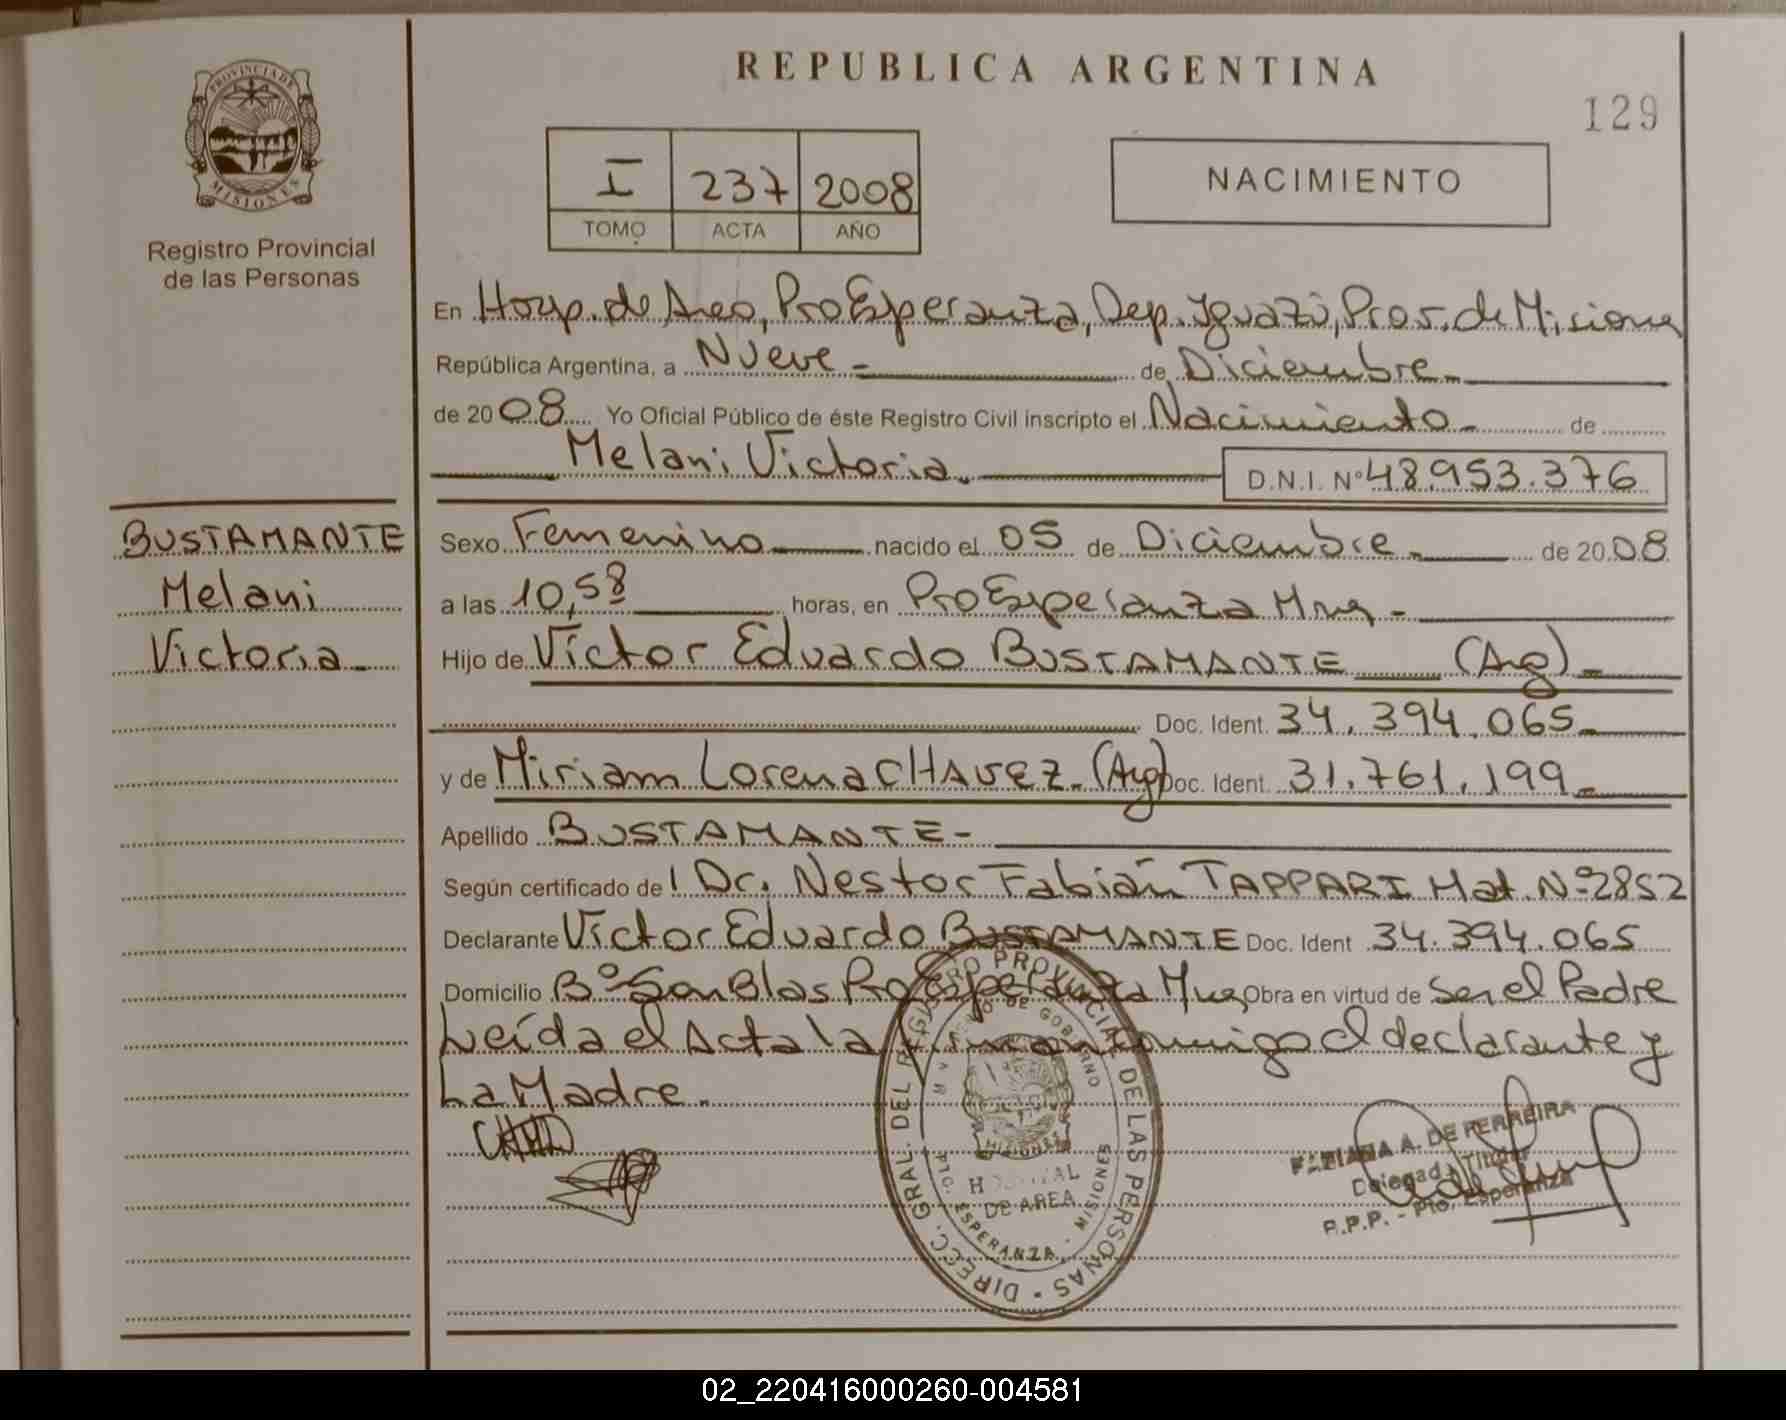 REPUBLICA ARGENTINA
129
PROVINCIA DE
MISIONES
Registro Provincial
de las Personas
I 237 2008
TOMO ACTA AÑO
NACIMIENTO
En Hosp. de Area, Pto Esperanza, Dep. Iguazú, Prov. de Misiones
República Argentina, a Nueve de Diciembre
de 2008 Yo Oficial Público de éste Registro Civil inscripto el Nacimiento de
Melani Victoria D.N.I. Nº 48.953.376
BUSTAMANTE
Melani
Victoria
Sexo Femenino nacido el 05 de Diciembre de 2008
a las 10,58 horas, en Pto Esperanza Mnes
Hijo de Víctor Eduardo BUSTAMANTE (Arg)
Doc. Ident. 34.394.065
y de Miriam Lorena CHAVEZ (Arg) Doc. Ident. 31.761.199
Apellido BUSTAMANTE
Según certificado de Dr. Nestor Fabián TAPPARI Mat. Nº 2852
Declarante Víctor Eduardo BUSTAMANTE Doc. Ident 34.394.065
Domicilio Bº San Blas Pto Esperanza Mnes, Obra en virtud de Ser el Padre
Leída el Acta la firman conmigo el declarante y
La Madre.
DIRECC. GRAL. DEL REGISTRO PROVINCIAL DE LAS PERSONAS
MINISTERIO DE GOBIERNO
MISIONES
HOSPITAL
DE AREA
PTO. ESPERANZA - MISIONES
FABIANA A. DE FERREIRA
Delegada Titular
R.P.P. - Pto. Esperanza
02_220416000260-004581